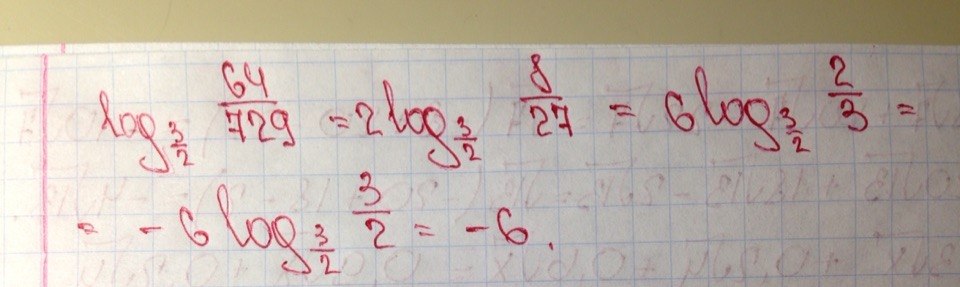 log_{3/2} 64/729 = 2log_{3/2} 8/27 = 6log_{3/2} 2/3 =
= -6 log_{3/2} 3/2 = -6.